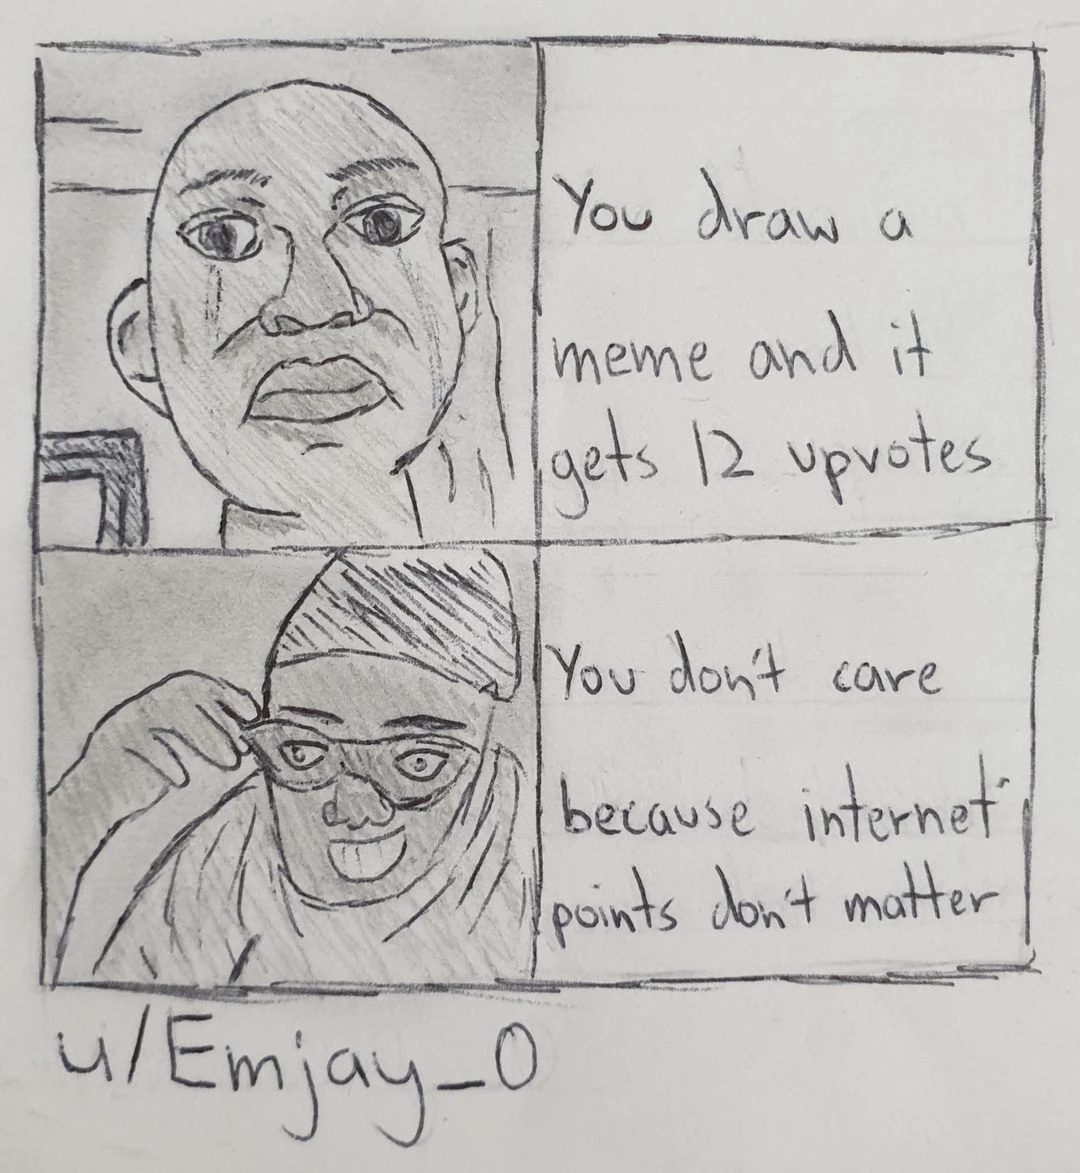 You draw a
meme and it
gets 12 upvotes
You don't care
because internet
points don't matter
u/Emjay_0